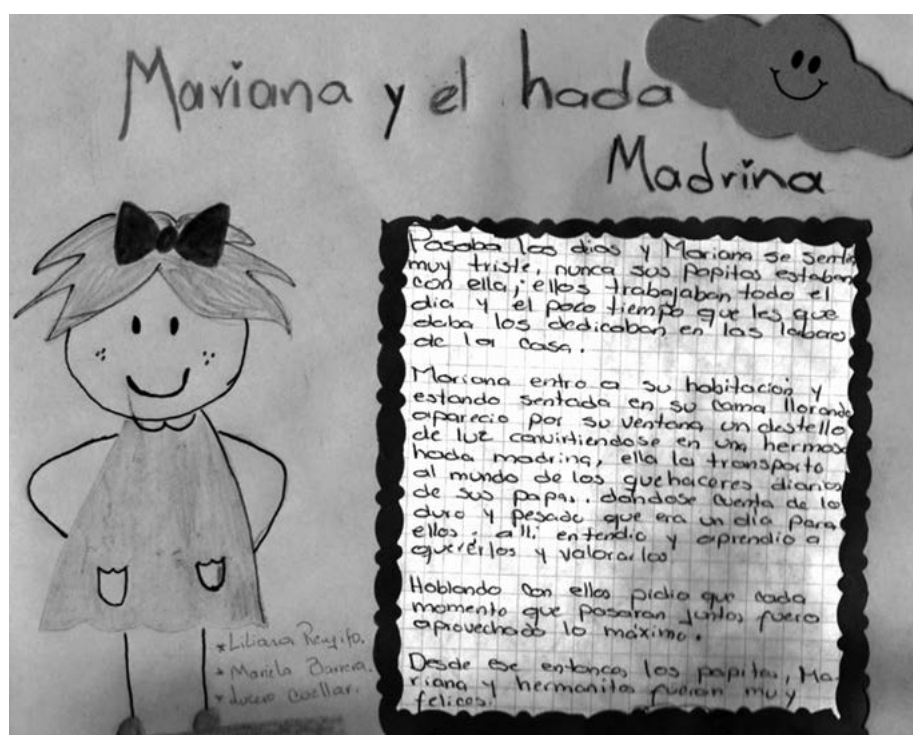 Mariana y el hada
Madrina
Pasaba los dias y Mariana se sentia
muy triste, nunca sus papitos estaban
con ella; ellos trabajaban todo el
dia y el poco tiempo que les que
daba los dedicaban en las labores
de la casa.
Mariana entro a su habitación y
estando sentada en su cama llorando
aparecio por su ventana un destello
de luz convirtiendose en una hermosa
hada madrina, ella la transporto
al mundo de los quehaceres diarios
de sus papas, dandose cuenta de lo
duro y pesado que era un dia para
ellos, alli entendio y aprendio a
quererlos y valorarlos
Hablando con ellos pidio que cada
momento que pasaran juntos fuera
aprovechado lo máximo.
Desde ese entonces los papitos, Ma-
riana y hermanitos fueron muy
felices.
*Liliana Rengifo.
*Mariela Barrera.
*Lucero Cuellar.